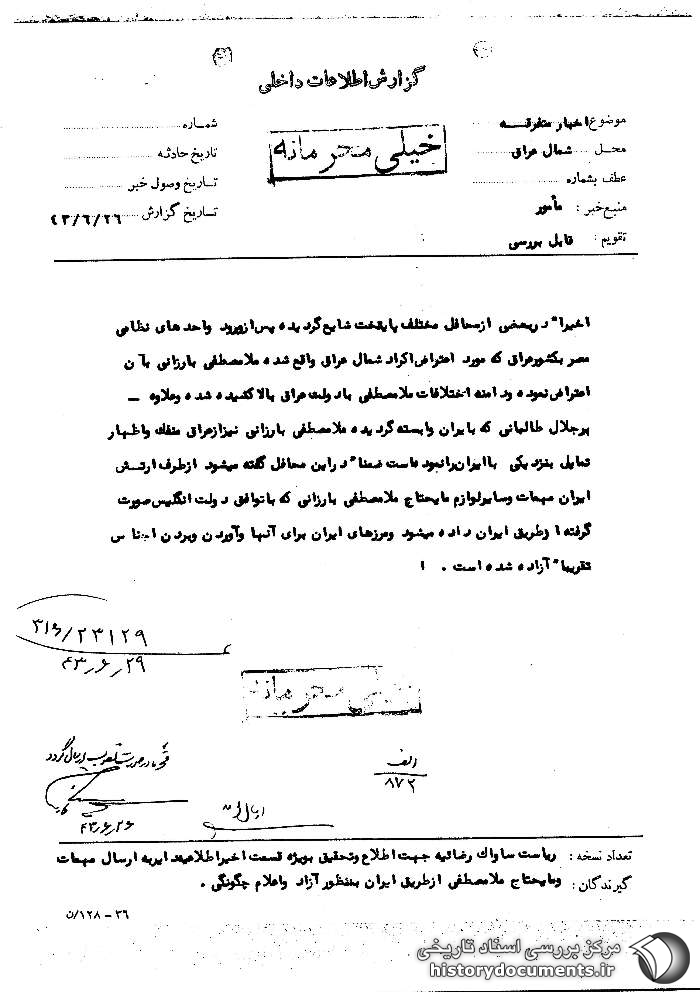 گزارش اطلاعات داخلی
موضوع: اخبار متفرقه
محل: شمال عراق
عطف بشماره
منبع خبر: مأمور
تقویم: قابل بررسی
خیلی محرمانه
شماره
تاریخ حادثه
تاریخ وصول خبر
تاریخ گزارش ۴۳/۶/۲۶
اخیرا" دربعضی ازمحافل مختلف پایتخت شایع گردیده پس ازورود واحدهای نظامی
مصر بکشورعراق که مورد اعتراض اکراد شمال عراق واقع شده ملامصطفی بارزانی بآن
اعتراض نموده ودامنه اختلافات ملامصطفی بادولت عراق بالاکشیده شده وعلاوه ـ
برجلال طالبانی که بایران وابسته گردیده ملامصطفی بارزانی نیزازعراق منفک واظهار
تمایل بنزدیکی باایران رانموده است ضمنا" دراین محافل گفته میشود ازطرف ارتش
ایران مهمات وسایرلوازم مایحتاج ملامصطفی بارزانی که باتوافق دولت انگلیس صورت
گرفته ازطریق ایران داده میشود ومرزهای ایران برای آنها وآوردن وبردن اجناس
تقریبا" آزاده شده است . ا
۳۱۶/۲۳۱۲۹
۴۳/۶/۲۹
محرمانه
الف
۸۷۲
درصورت تصویب ارسال گردد
۴۳/۶/۲۶
تعداد نسخه: ریاست ساواک رضائیه جهت اطلاع وتحقیق بویژه قسمت اخیراطلاعیه دایربه ارسال مهمات
گیرندگان: ومایحتاج ملامصطفی ازطریق ایران بمنظور آزاد واعلام چگونگی .
۳۶ - ۱۲۸/ن
مرکز بررسی اسناد تاریخی
historydocuments.ir